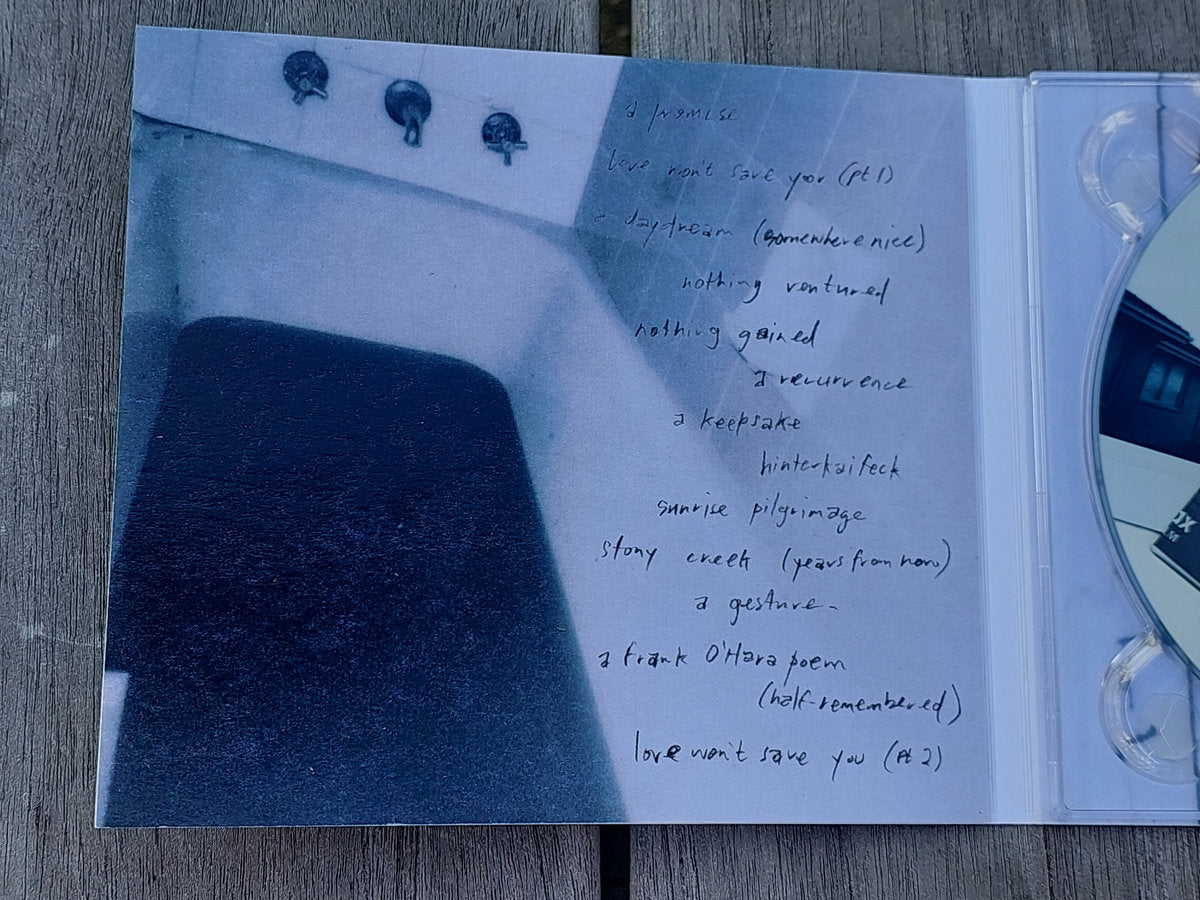 a promise
love won't save you (pt 1)
a daydream (somewhere nice)
nothing ventured
nothing gained
a recurrence
a keepsake
hinterkaifeck
sunrise pilgrimage
stony creek (years from now)
a gesture
a frank O'Hara poem
(half-remembered)
love won't save you (pt 2)